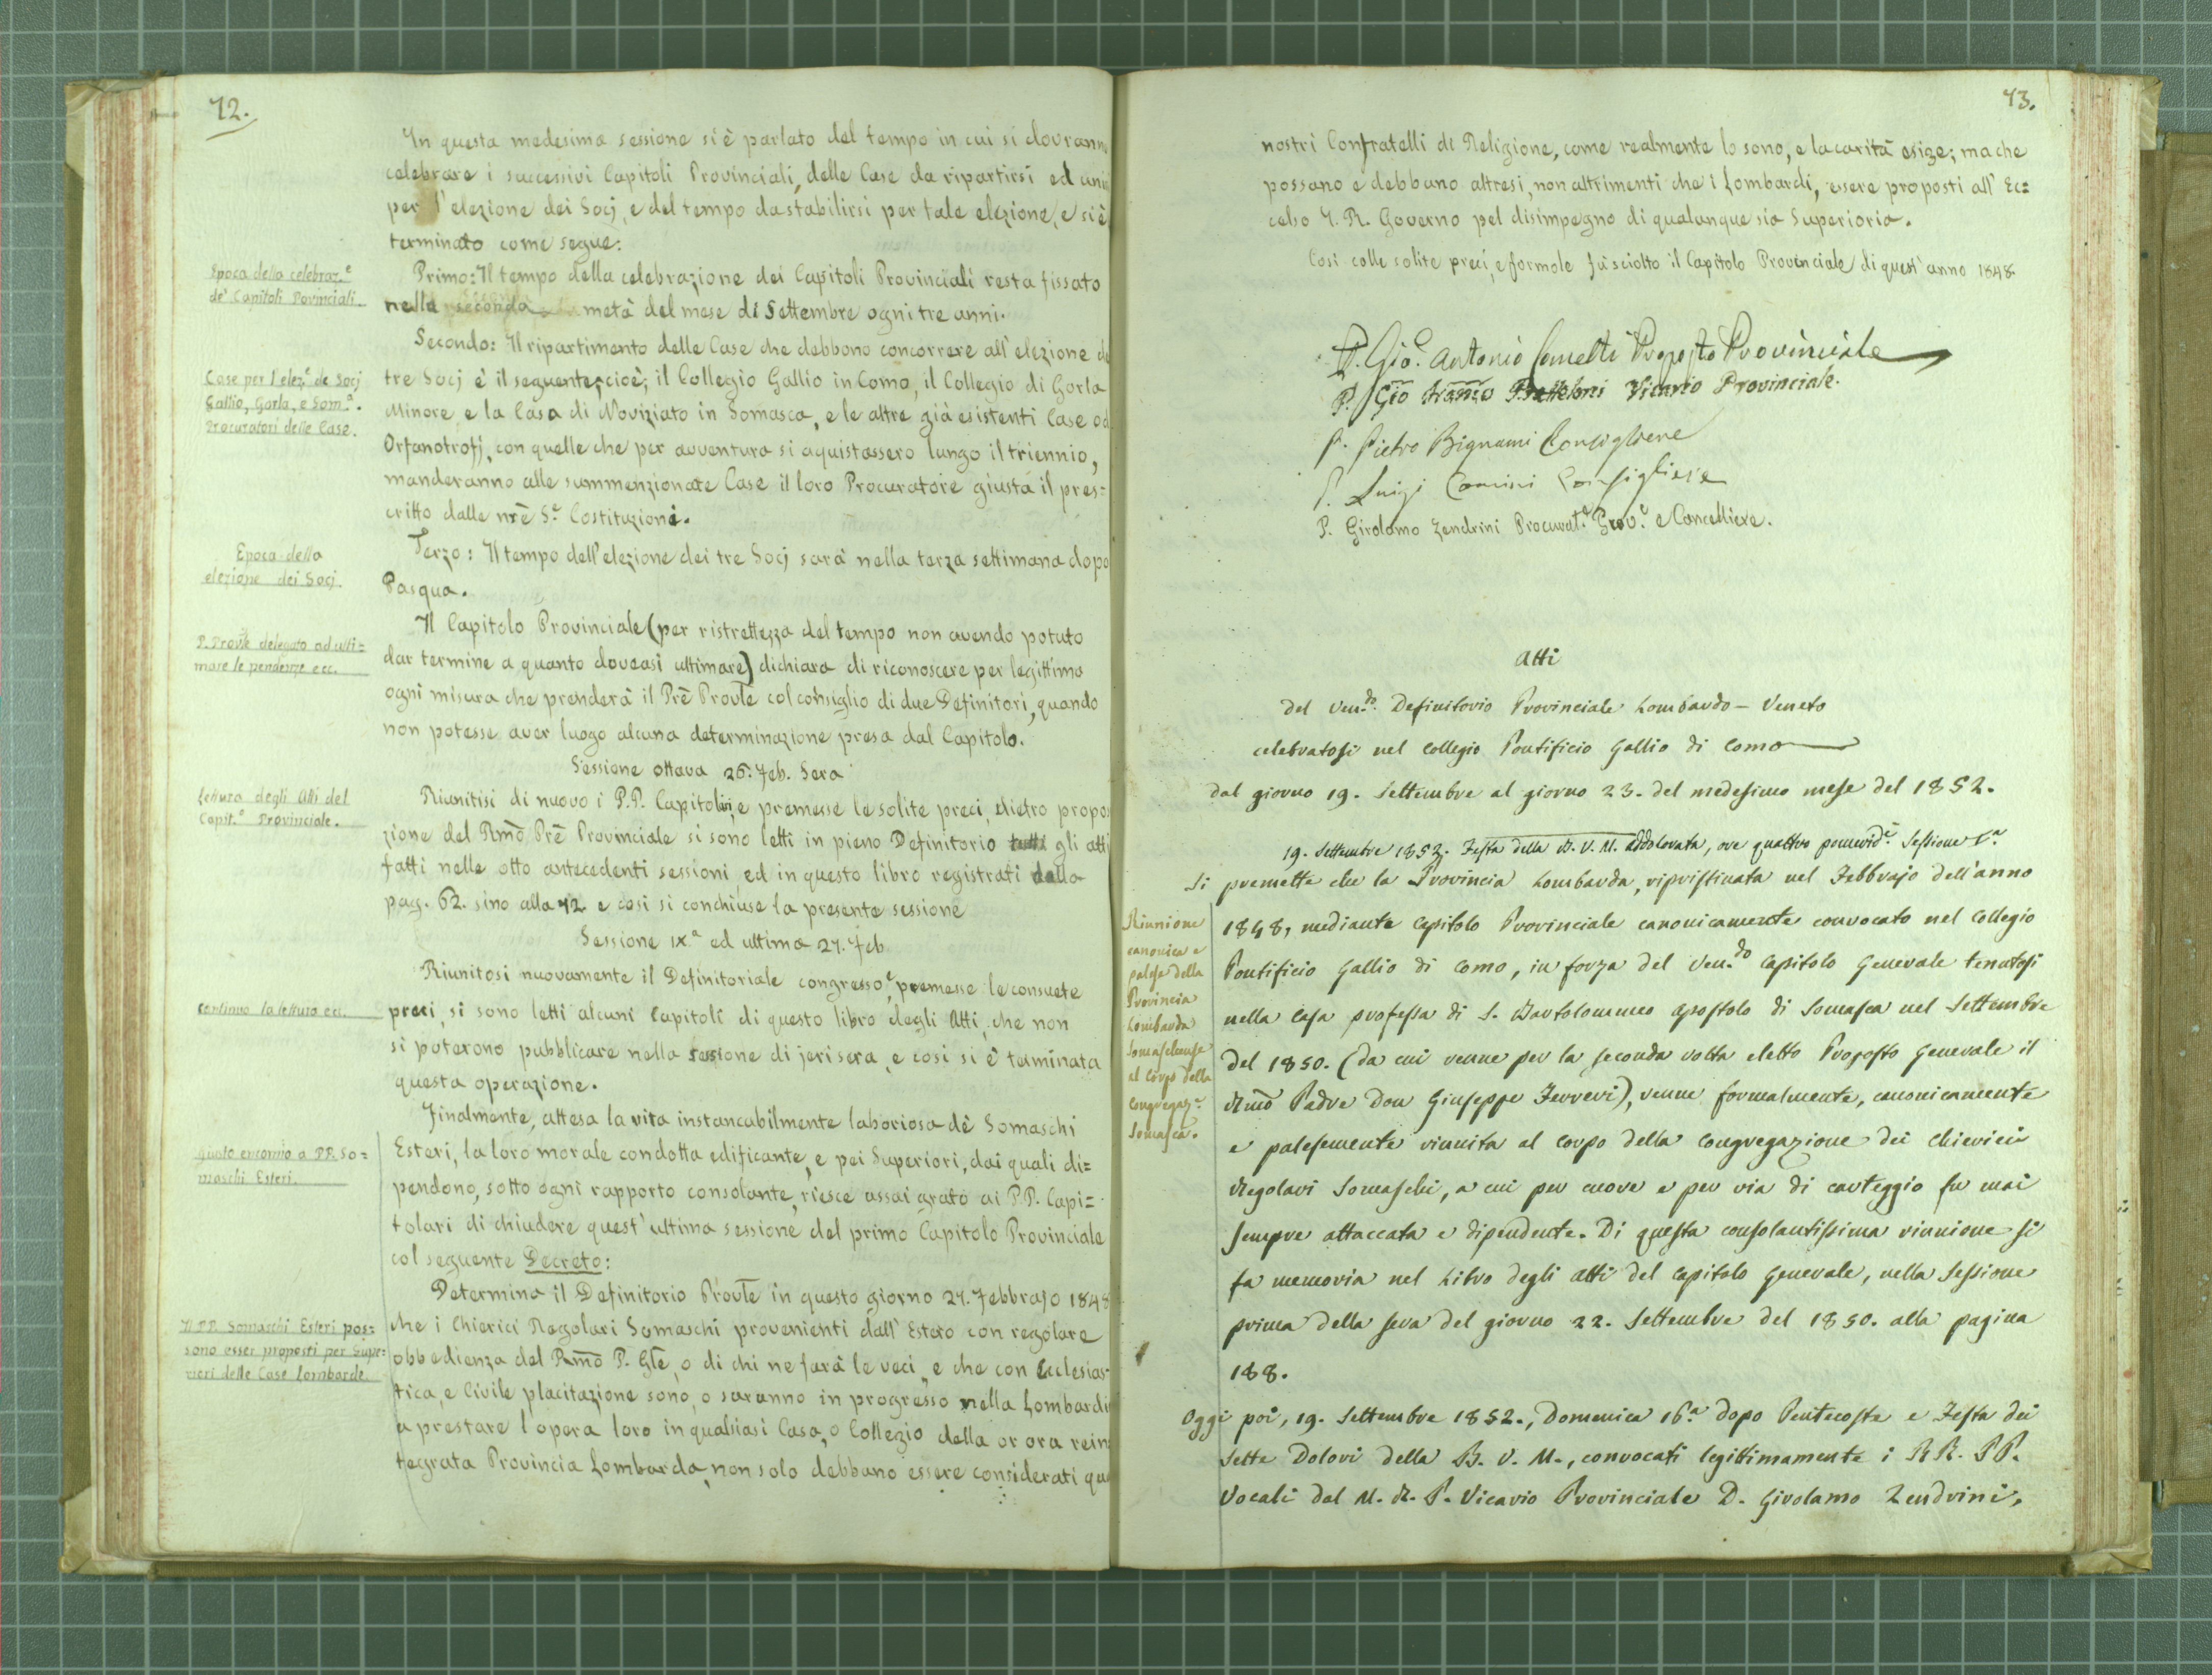 72.
In questa medesima sessione si è parlato del tempo in cui si dovranno
celebrare i successivi Capitoli Provinciali, delle Case da ripartirsi ed
per l'elezione dei Socj, e del tempo da stabilirsi per tale elezione, e si è
terminato come segue:
Epoca della celebraz.e
de' Capitoli Povinciali.
Primo: Il tempo della celebrazione dei Capitoli Provinciali resta fissato
nella seconda metà del mese di Settembre ogni tre anni.
Secondo: Il ripartimento delle Case che debbono concorrere all'elezione de
Case per l'elez.e de Socj
Gallio, Gorla, e Som.a.
Procuratori delle Case.
tre Socj è il seguente, cioè; il Collegio Gallio in Como, il Collegio di Gorla
Minore e la Casa di Noviziato in Somasca, e le altre già esistenti Case od
Orfanotrofj, con quelle che per avventura si aquistassero lungo il triennio,
manderanno alle summenzionate Case il loro Procuratore giusta il pres=
critto dalle nrē S.e Costituzioni.
Epoca della
elezione dei Socj.
Terzo: Il tempo dell'elezione dei tre Socj sarà nella terza settimana dopo
Pasqua.
P. Provle delegato ad ulti=
mare le pendenze ecc.
Il Capitolo Provinciale (per ristrettezza del tempo non avendo potuto
dar termine a quanto doveasi ultimare) dichiara di riconoscere per legittimo
ogni misura che prenderà il Prē Provle col consiglio di due Definitori, quando
non potesse aver luogo alcuna determinazione presa dal Capitolo.
Sessione ottava 26. Feb. Sera
Lettura degli Atti del
Capit.o Provinciale.
Riunitisi di nuovo i P.P. Capitolari, e premesse le solite preci, dietro propo
zione del Rmō Prē Provinciale si sono letti in pieno Definitorio tutti gli atti
fatti nelle otto antecedenti sessioni, ed in questo libro registrati dalla
pag. 62. sino alla 72. e così si conchiuse la presente sessione
Sessione IX.a ed ultima 27. Feb
Continua la lettura ecc.
Riunitosi nuovamente il Definitoriale congresso, e premesse le consuete
preci, si sono letti alcuni Capitoli di questo libro degli Atti, che non
si poterono pubblicare nella sessione di jeri sera, e così si è terminata
questa operazione.
Finalmente, attesa la vita instancabilmente laboriosa dè Somaschi
encomio a PP. So=
maschi Esteri.
Esteri, la loro morale condotta edificante, e pei Superiori, dai quali di=
pendono, sotto ogni rapporto consolante, riesce assai grato ai P.P. Capi=
tolari di chiudere quest'ultima sessione del primo Capitolo Provinciale
col seguente Decreto:
Determina il Definitorio Provle in questo giorno 27. Febbrajo 1848
I PP. Somaschi Esteri pos=
sono esser proposti per Supe=
riori delle Case Lombarde.
che i Chierici Regolari Somaschi provenienti dall'Estero con regolare
obbedienza del Rmō P. Gle, o di chi ne farà le veci, e che con Ecclesias
tica, e Civile placitazione sono, o saranno in progresso nella Lombardi
a prestare l'opera loro in qualsiasi Casa, o Collegio della or ora rein
tegrata Provincia Lombarda, non solo debbano essere considerati qua
73.
nostri Confratelli di Religione, come realmente lo sono, e la carità esige; ma che
possano e debbano altresì, non altrimenti che i Lombardi, essere proposti all'Ec=
celso I. R. Governo pel disimpegno di qualunque sia Superioria.
Così colle solite preci, e formole fù sciolto il Capitolo Provinciale di quest'anno 1848.
P. Gio. Antonio Comelti Proposto Provinciale
P. Gio Vicario Provinciale.
P. Pietro Bignami Consigliere
P. Luigi Comini Consigliere
P. Girolamo Zendrini Procurat.e Prov.e e Cancelliere.
Atti
del Ven.do Definitorio Provinciale Lombardo - Veneto
celebratosi nel Collegio Pontificio Gallio di Como
dal giorno 19. Settembre al giorno 23. del medesimo mese del 1852.
19. Settembre 1852. Festa della B. V. M. Addolorata, ore quattro pomerid.e Sessione I.a
Si premette che la Provincia Lombarda, ripristinata nel Febbrajo dell'anno
Riunione
canonica e
palese della
Provincia
Lombarda
Somaschense
al Corpo della
Congregaz.e
Somasca.
1848, mediante Capitolo Provinciale canonicamente convocato nel Collegio
Pontificio Gallio di Como, in forza del Ven.do Capitolo Generale tenutosi
nella Casa professa di S. Bartolommeo Apostolo di Somasca nel Settembre
del 1850. (da cui venne per la seconda volta eletto Proposto Generale il
Rmō Padre Don Giuseppe Ferreri), venne formalmente, canonicamente
e palesemente riunita al Corpo della Congregazione dei Chierici
Regolari Somaschi, a cui per cuore e per via di carteggio fu mai
sempre attaccata e dipendente. Di questa consolantissima riunione si
fa memoria nel Libro degli Atti del Capitolo Generale, nella Sessione
prima della sera del giorno 22. Settembre del 1850. alla pagina
188.
Oggi poi, 19. Settembre 1852., Domenica 16.a dopo Pentecoste e Festa dei
Sette Dolori della B. V. M., convocati legittimamente i RR. PP.
Vocali dal M. R. P. Vicario Provinciale D. Girolamo Zendrini,